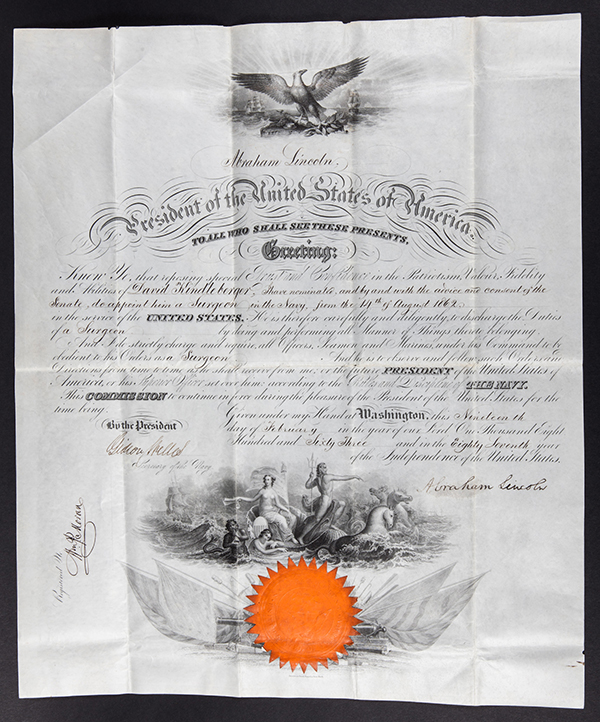 Abraham Lincoln.
President of the United States of America.
TO ALL WHO SHALL SEE THESE PRESENTS,
Greeting:
Know Ye, that reposing special Trust and Confidence in the Patriotism, Valour, Fidelity
and Abilities of David Kindleberger, I have nominated, and by and with the advice and consent of the
Senate, do appoint him a Surgeon in the Navy, from the 14th of August 1862,
in the service of the UNITED STATES. He is therefore carefully and diligently to discharge the Duties
of a Surgeon by doing and performing all Manner of Things thereto belonging.
And I do strictly charge and require all Officers, Seamen and Marines, under his Command to be
obedient to his Orders as a Surgeon And he is to observe and follow such Orders and
Directions from time to time as he shall receive from me, or the future PRESIDENT of the United States of
America, or his Superior Officer set over him, according to the Rules and Discipline of THE NAVY.
This COMMISSION to continue in force during the pleasure of the President of the United States for the
time being.
Given under my Hand at Washington, this Nineteenth
day of February in the year of our Lord One Thousand Eight
Hundred and Sixty Three and in the Eighty Seventh year
of the Independence of the United States.
By the President
Gideon Welles
Secretary of the Navy
Abraham Lincoln
Registered